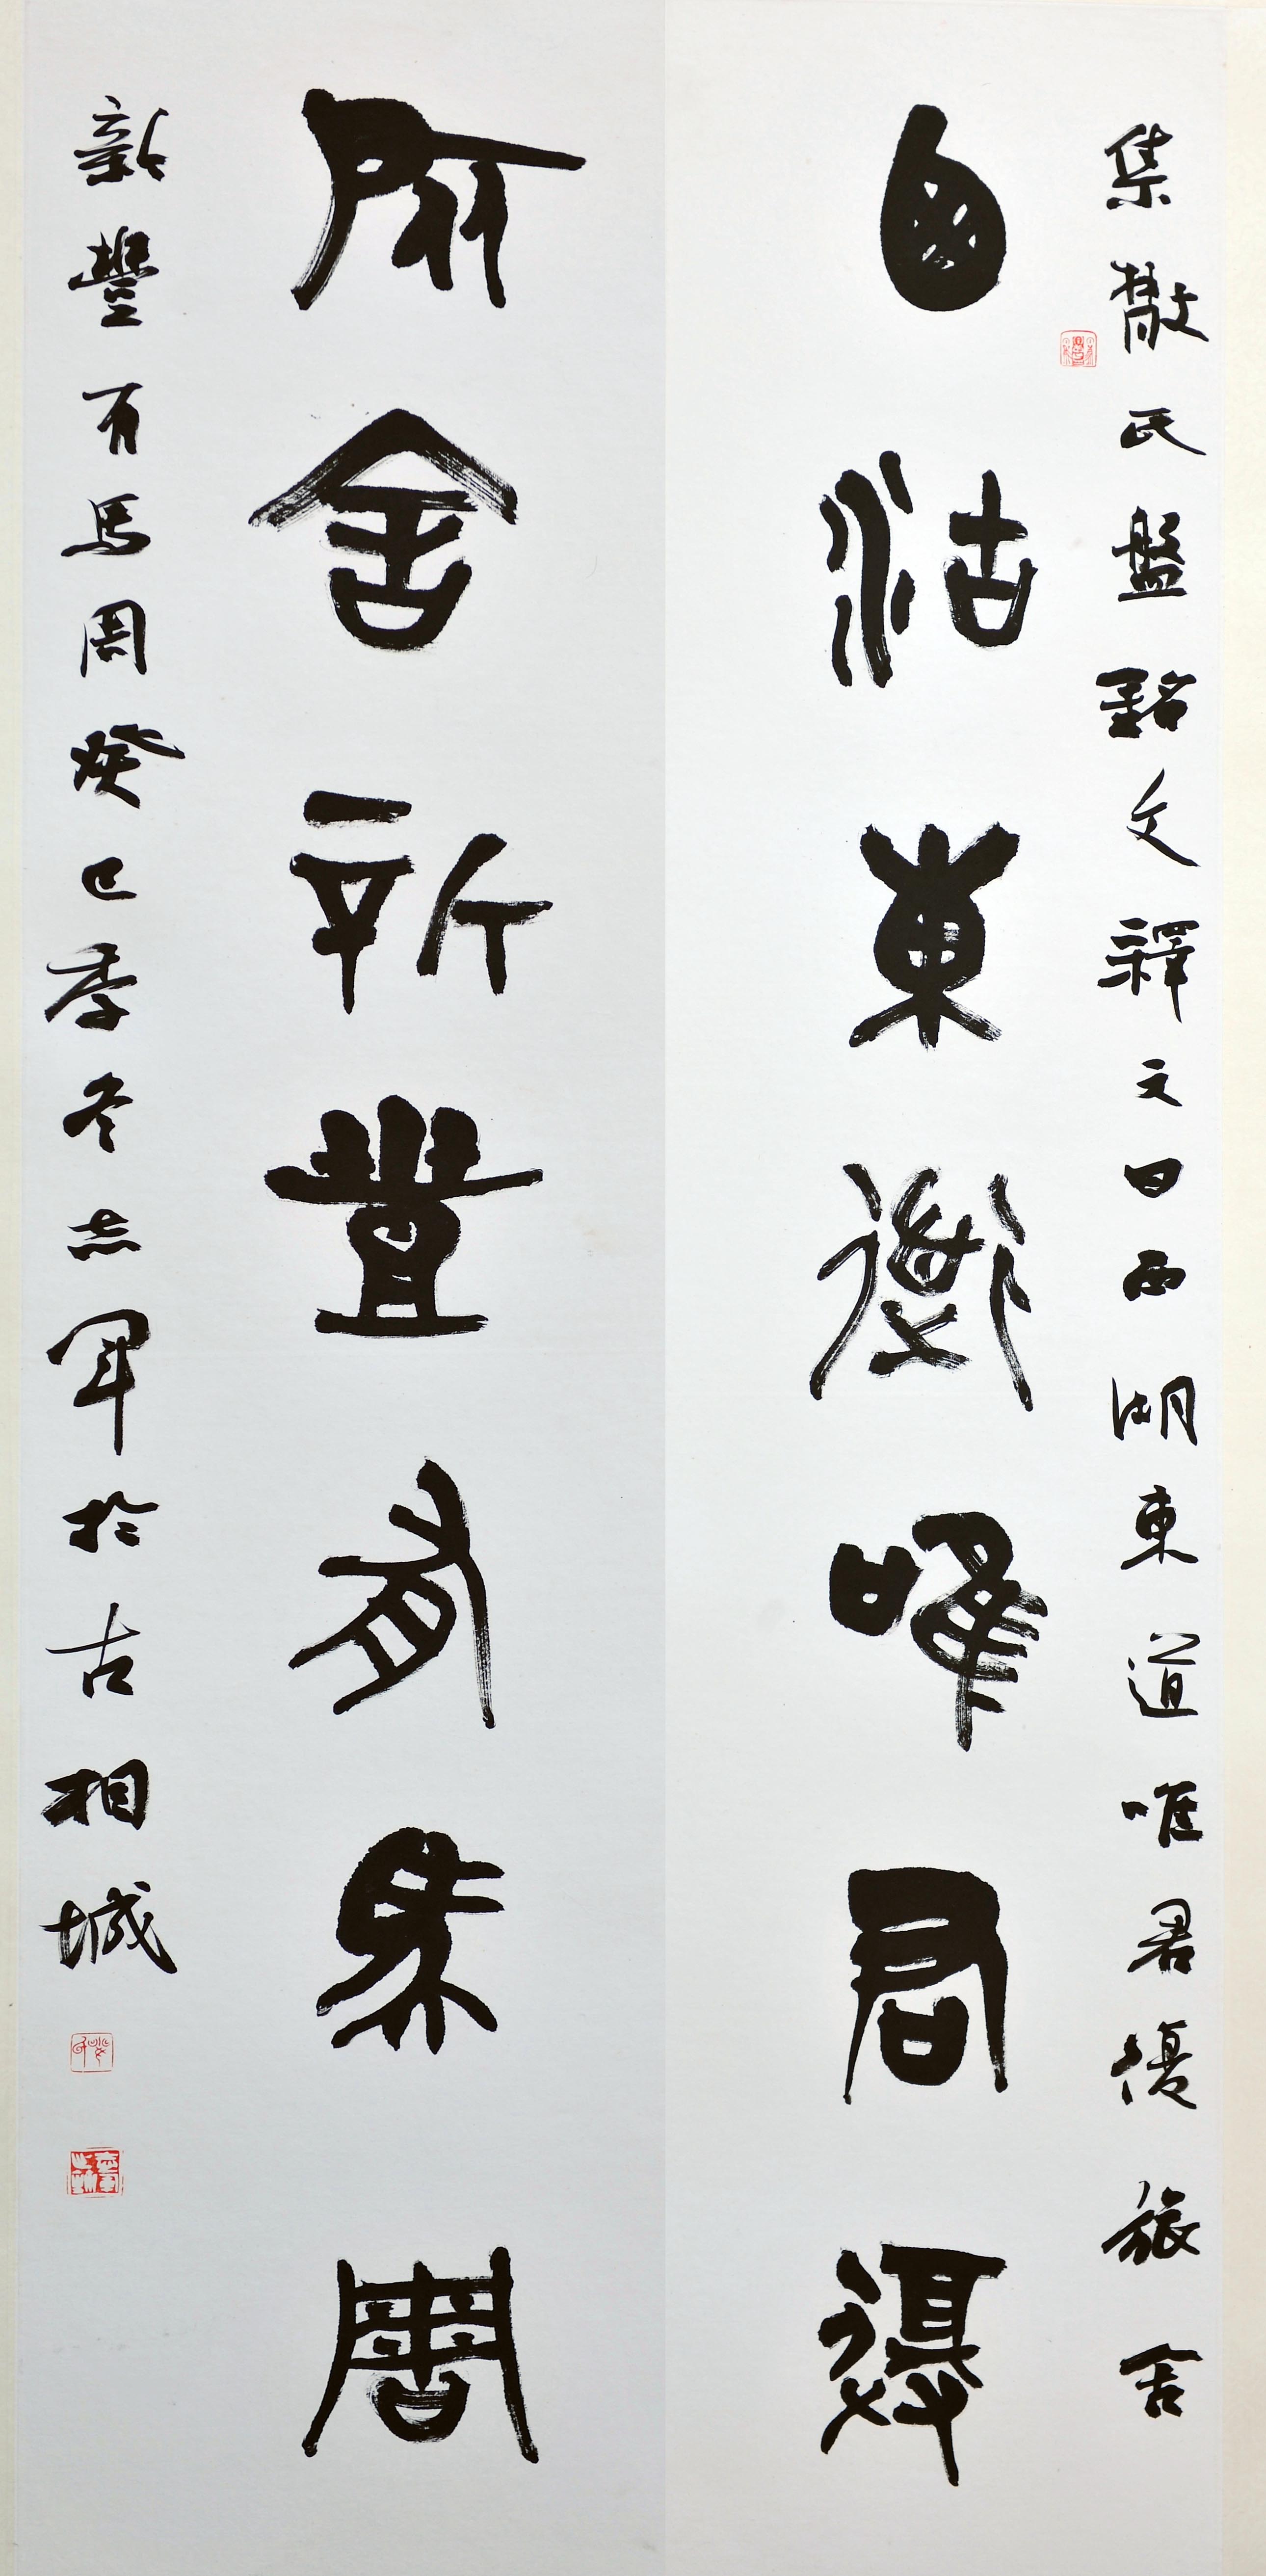 集散氏盤銘文釋文曰西湖東道唯君優旅舍
西湖東道唯君優
旅舍新豐有馬周
新豐有馬周癸巳季冬志軍於古相城